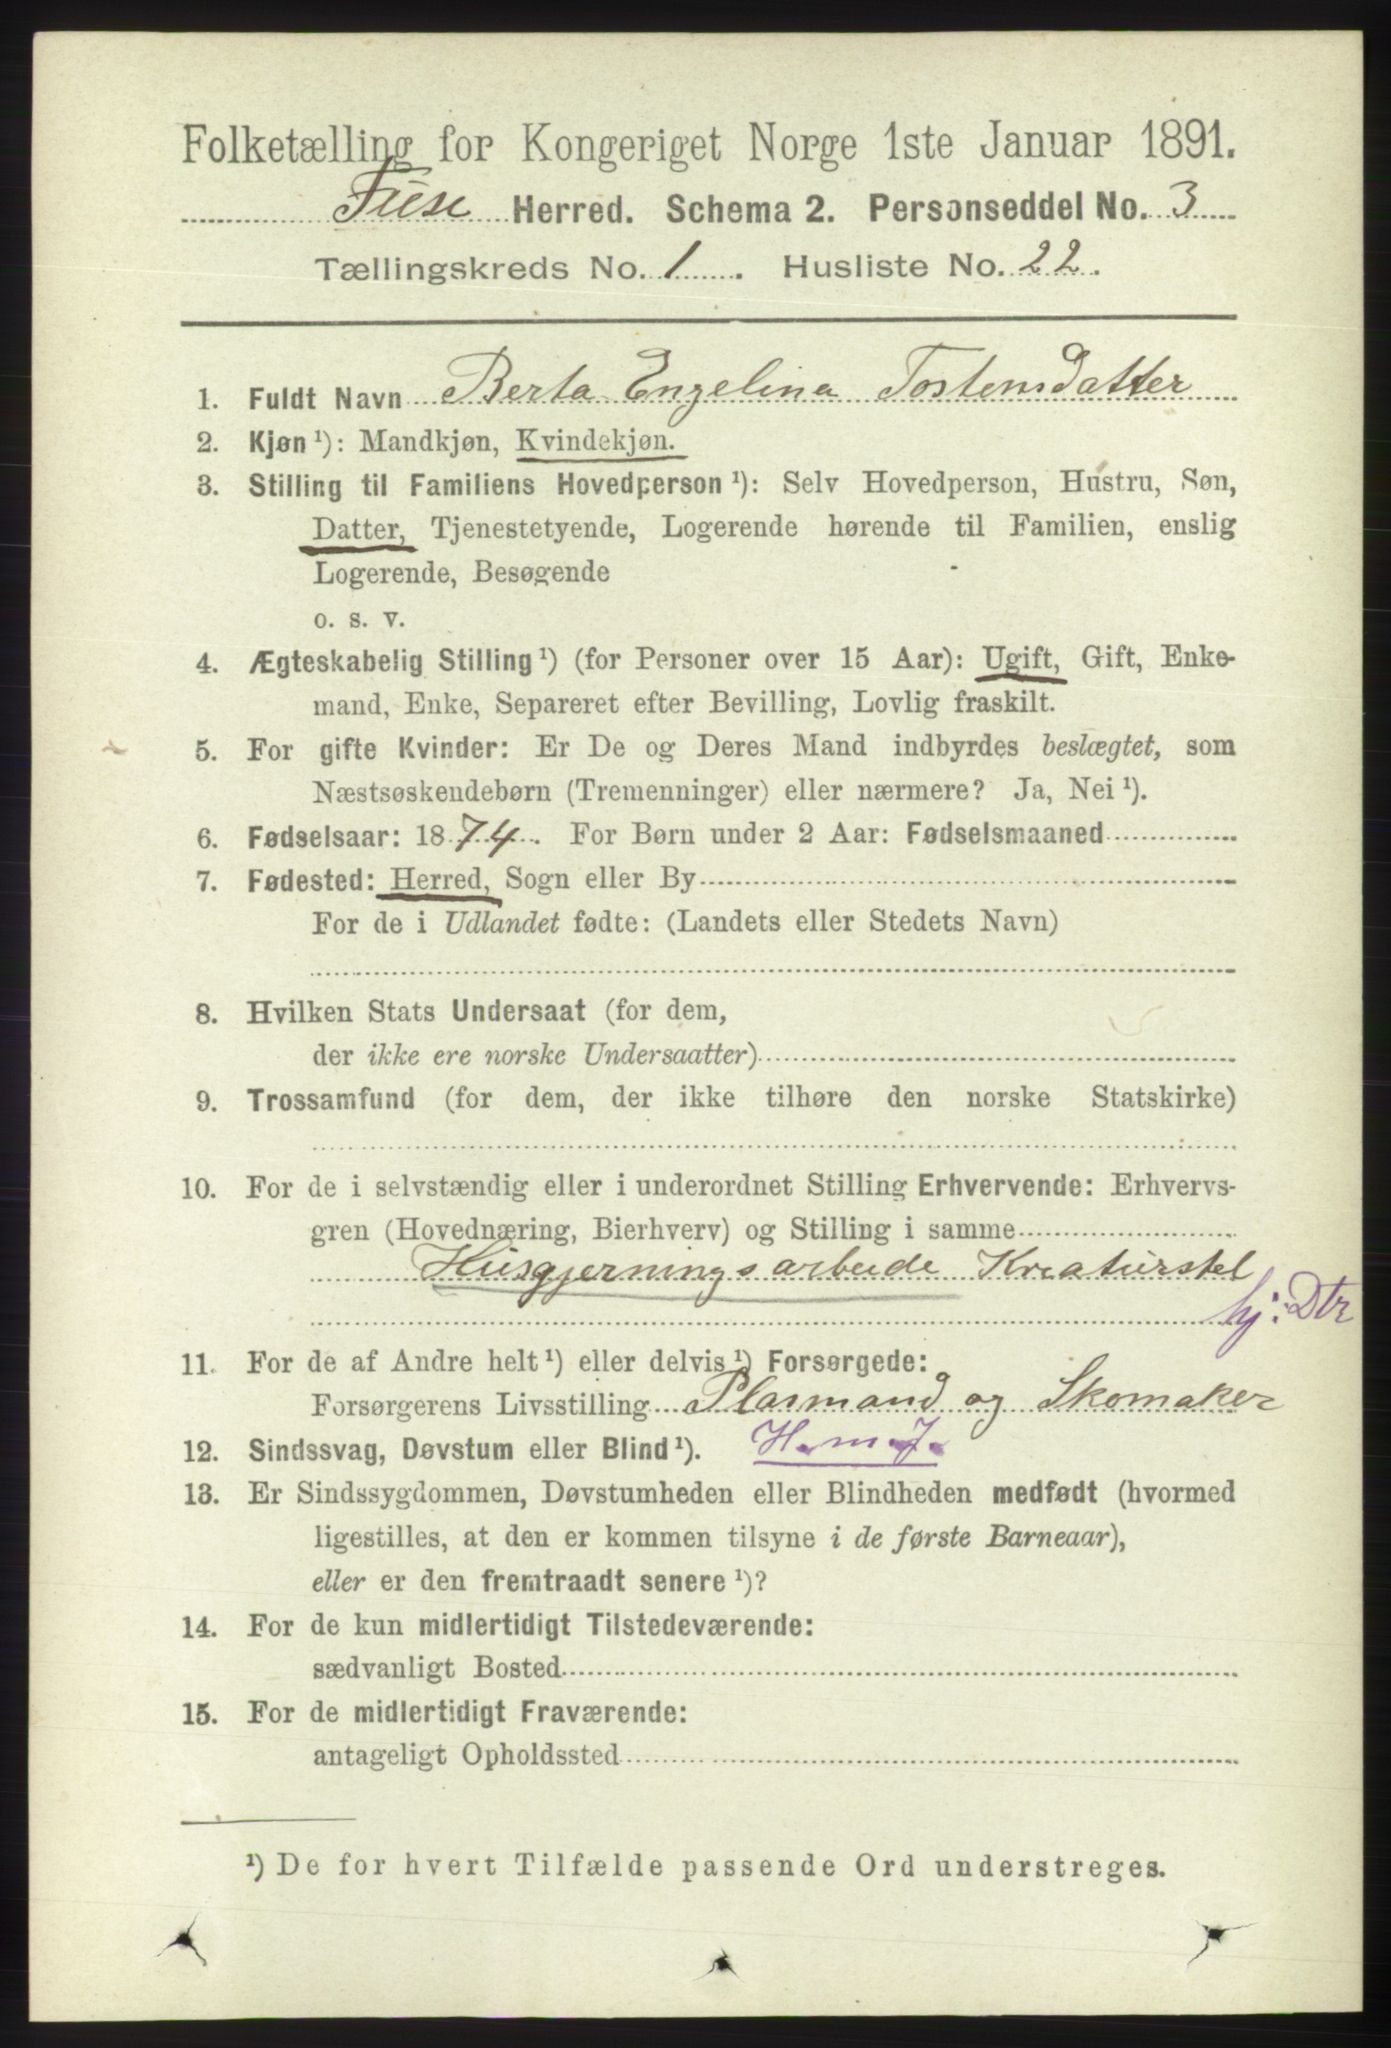 Folketælling for Kongeriget Norge 1ste Januar 1891.
Fuse Herred. Schema 2. Personseddel No. 3
Tællingskreds No. 1. Husliste No. 22.
1. Fuldt Navn Berta Engelina Tostensdatter
2. Kjøn ¹): Mandkjøn, Kvindekjøn.
3. Stilling til Familiens Hovedperson ¹): Selv Hovedperson, Hustru, Søn,
Datter, Tjenestetyende, Logerende hørende til Familien, enslig
Logerende, Besøgende
o. s. v.
4. Ægteskabelig Stilling ¹) (for Personer over 15 Aar): Ugift, Gift, Enke-
mand, Enke, Separeret efter Bevilling, Lovlig fraskilt.
5. For gifte Kvinder: Er De og Deres Mand indbyrdes beslægtet, som
Næstsøskendebørn (Tremenninger) eller nærmere? Ja, Nei ¹).
6. Fødselsaar: 1874. For Børn under 2 Aar: Fødselsmaaned
7. Fødested: Herred, Sogn eller By
For de i Udlandet fødte: (Landets eller Stedets Navn)
8. Hvilken Stats Undersaat (for dem,
der ikke ere norske Undersaatter)
9. Trossamfund (for dem, der ikke tilhøre den norske Statskirke)
10. For de i selvstændig eller i underordnet Stilling Erhvervende: Erhvervs-
gren (Hovednæring, Bierhverv) og Stilling i samme
Husgjerningsarbeide Kreaturstel
hj: Dtr
11. For de af Andre helt ¹) eller delvis ¹) Forsørgede:
Forsørgerens Livsstilling Plasmand og Skomaker
12. Sindssvag, Døvstum eller Blind ¹). H.m.J.
13. Er Sindssygdommen, Døvstumheden eller Blindheden medfødt (hvormed
ligestilles, at den er kommen tilsyne i de første Barneaar),
eller er den fremtraadt senere ¹)?
14. For de kun midlertidigt Tilstedeværende:
sædvanligt Bosted
15. For de midlertidigt Fraværende:
antageligt Opholdssted
¹) De for hvert Tilfælde passende Ord understreges.